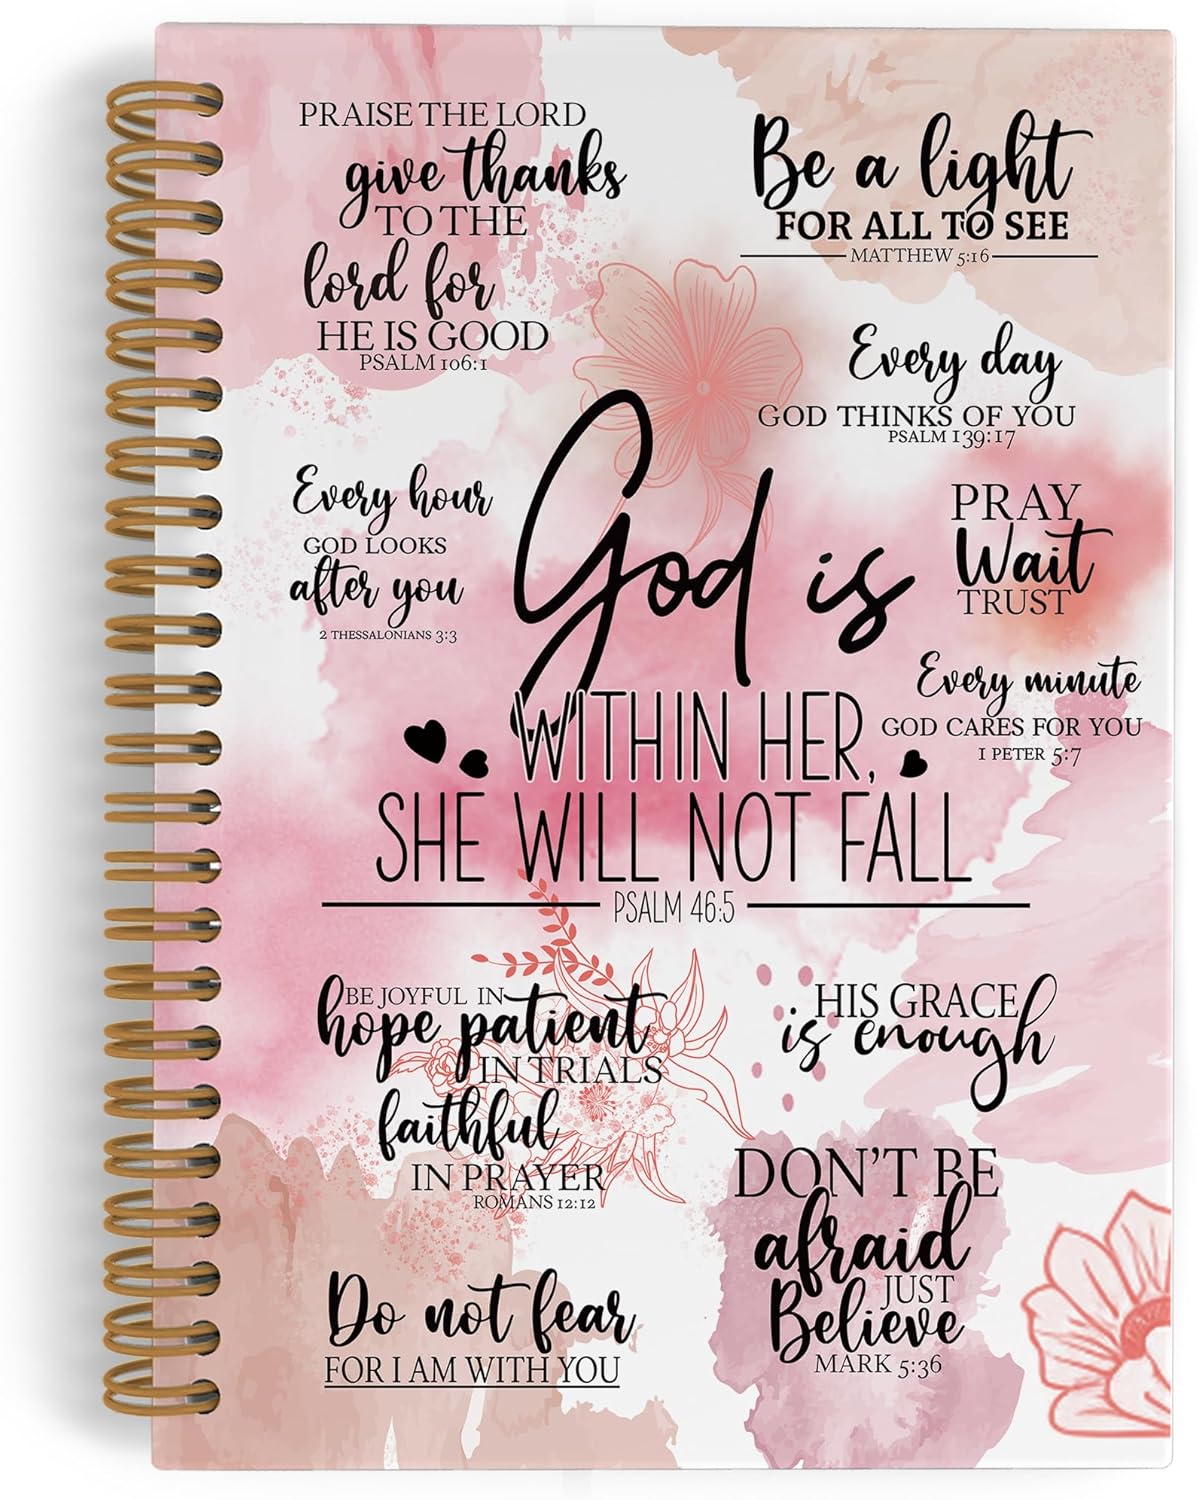 PRAISE THE LORD
give thanks
TO THE
lord for
HE IS GOOD
PSALM 106:1
Be a light
FOR ALL TO SEE
MATTHEW 5:16
Every day
GOD THINKS OF YOU
PSALM 139:17
Every hour
GOD LOOKS
after you
2 THESSALONIANS 3:3
PRAY
Wait
TRUST
God is
WITHIN HER,
SHE WILL NOT FALL
PSALM 46:5
Every minute
GOD CARES FOR YOU
1 PETER 5:7
BE JOYFUL IN
hope patient
IN TRIALS
faithful
IN PRAYER
ROMANS 12:12
HIS GRACE
is enough
DON'T BE
afraid
JUST
Believe
MARK 5:36
Do not fear
FOR I AM WITH YOU